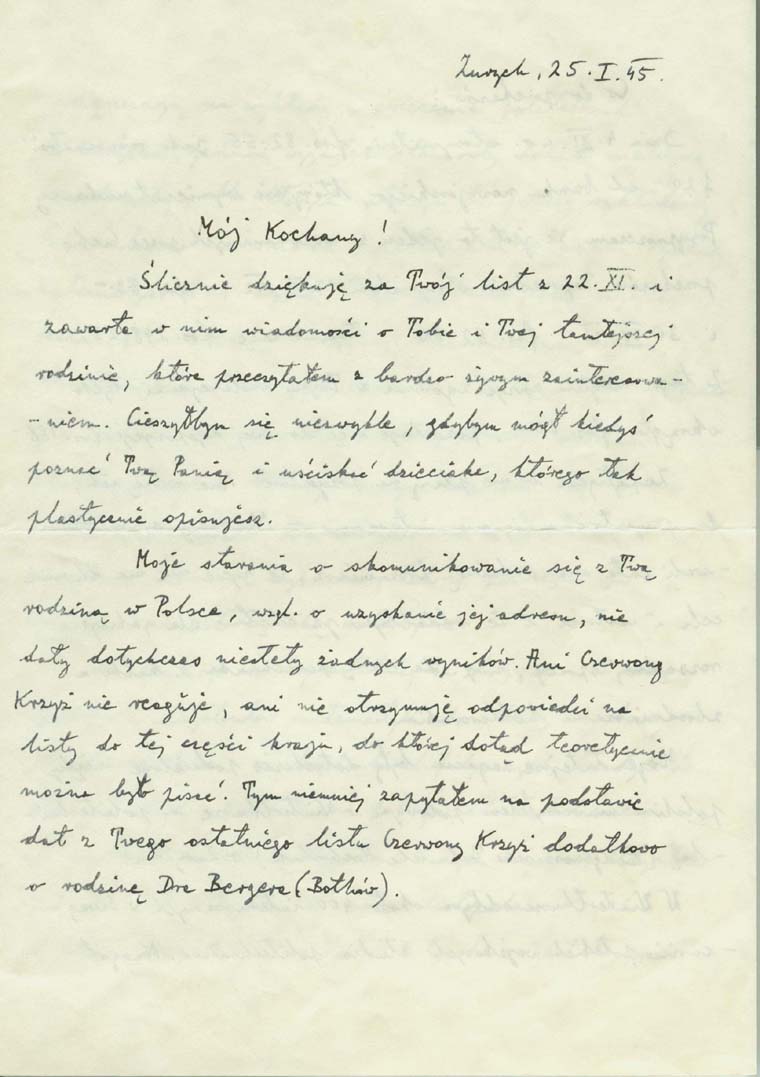 Zurych, 25.I.45.
Mój Kochany!
Ślicznie dziękuję za Twój list z 22.XI. i
zawarte w nim wiadomości o Tobie i Twej tamtejszej
rodzinie, które przeczytałem z bardzo żywym zainteresowa-
-niem. Cieszyłbym się niezwykle, gdybym mógł kiedyś
poznać Twą Panią i uściskać dzieciaka, którego tak
plastycznie opisujesz.
Moje starania o skomunikowanie się z Twą
rodziną w Polsce, wzgl. o uzyskanie jej adresu, nie
dały dotychczas niestety żadnych wyników. Ani Czerwony
Krzyż nie reaguje, ani nie otrzymuję odpowiedzi na
listy do tej części kraju, do której dotąd teoretycznie
można było pisać. Tym niemniej zapytałem na podstawie
dat z Twego ostatniego listu Czerwony Krzyż dodatkowo
o rodzinę Dra Bergera (Bothów).